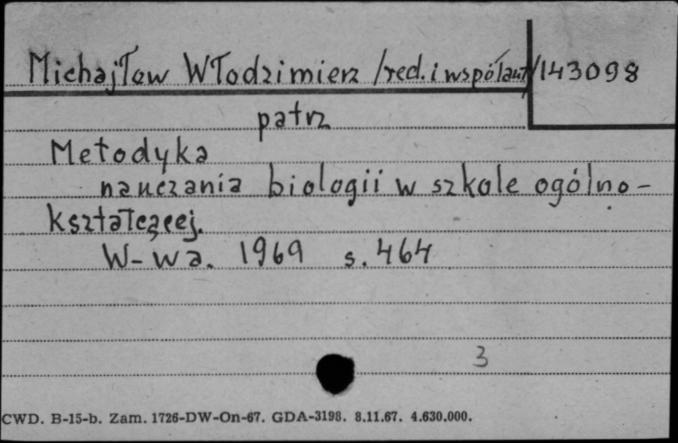 Michajłow Włodzimierz /red. i współaut/ 143098
patrz
Metodyka
nauczania biologii w szkole ogólno-
kształcącej.
W-wa. 1969 s. 464
3
CWD. B-15-b. Zam. 1726-DW-On-67. GDA-3198. 8.11.67. 4.630.000.